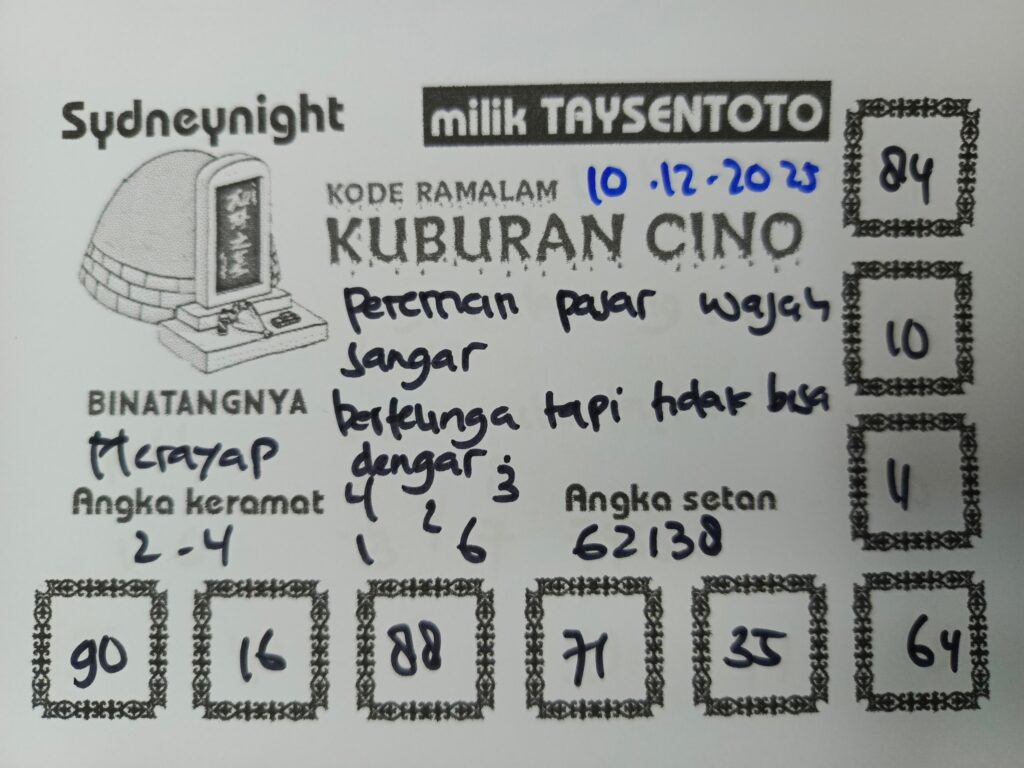 Sydneynight
milik TAYSENTOTO
KODE RAMALAM 10.12.2025
KUBURAN CINO
84
Pereman pasar wajah
sangar
10
BINATANGNYA
bertelinga tapi tidak bisa
Merayap
dengar.
Angka keramat
4 3
2
Angka setan
11
2-4
1 6
62138
90 16 88 71 35 64